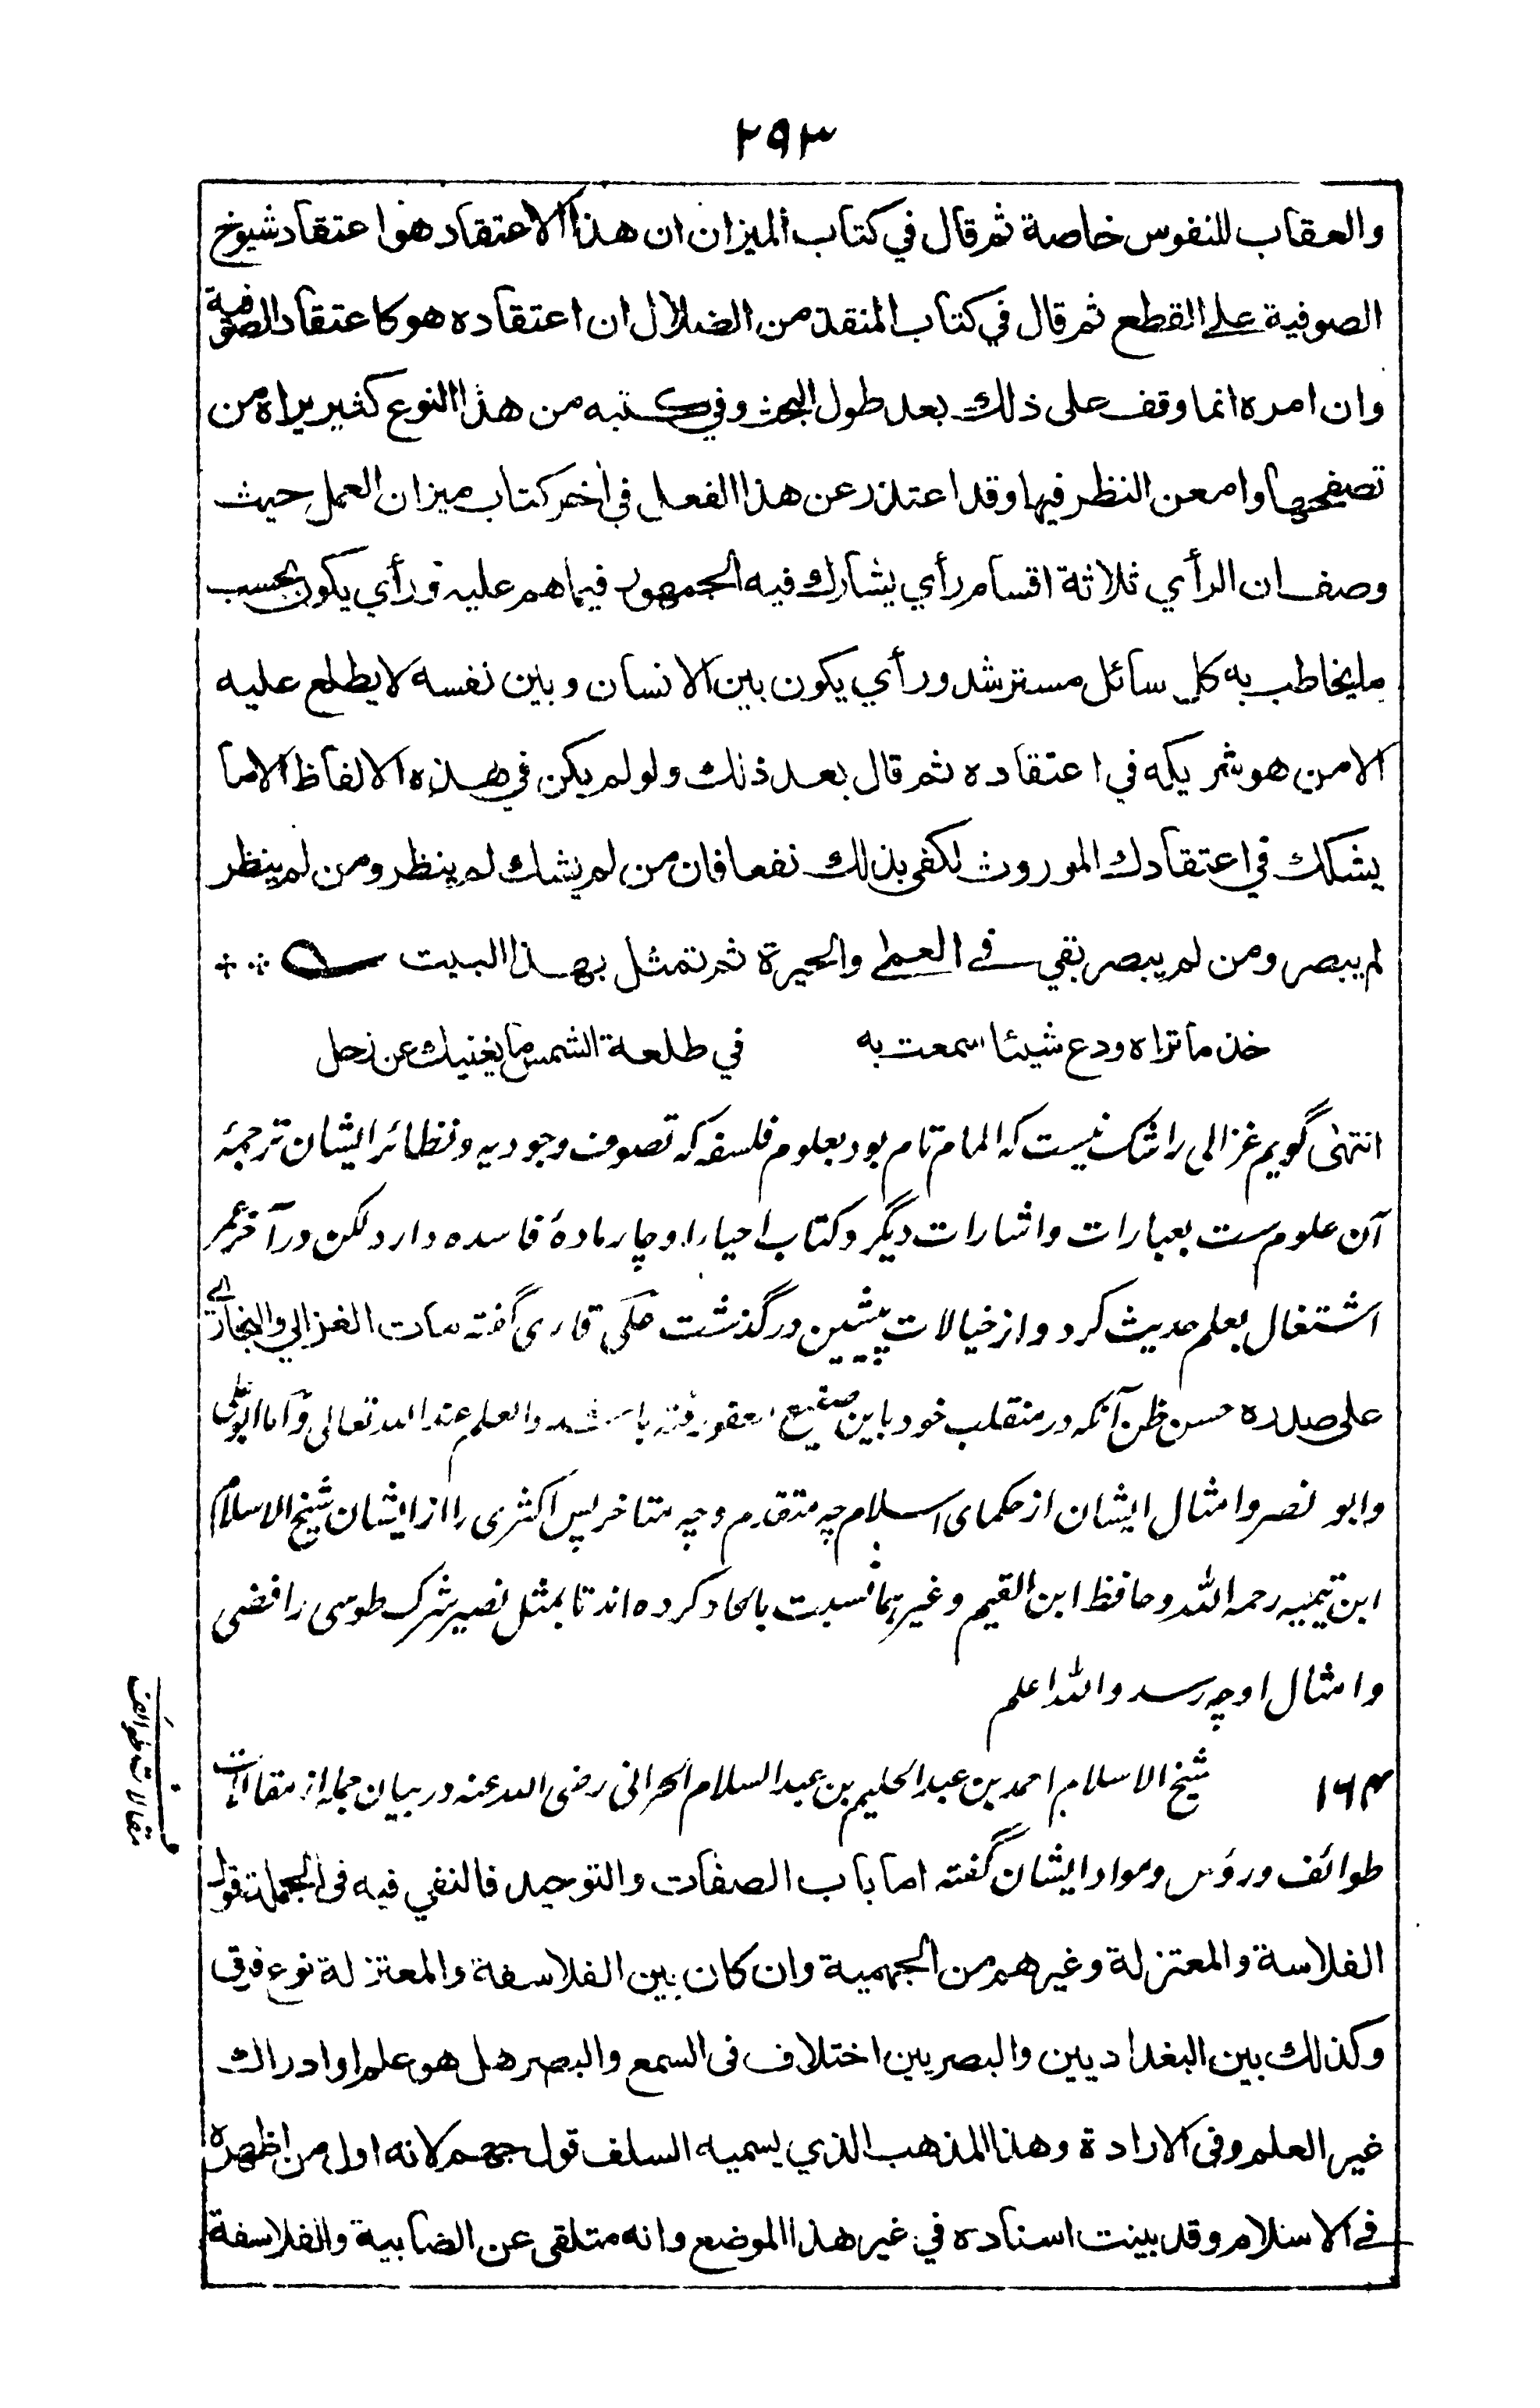 ۲۹۳
والعقاب للنفوس خاصة ثم قال في كتاب الميزان ان هذا الاعتقاد هو اعتقاد شيوخ
الصوفية على القطع ثم قال في كتاب المنقذ من الضلال ان اعتقاده هو كاعتقاد الصوفية
وان امره انما وقف على ذلك بعد طول البحث وفي كتبه من هذا النوع كثير يراه من
تصفحها وامعن النظر فيها وقد اعتذر عن هذا الفعل في آخر كتاب ميزان العمل حيث
وصف ان الرأي ثلاثة اقسام رأي يشارك فيه الجمهور فيما هم عليه ورأي يكون بحسب
ما يخاطب به كل سائل مسترشد ورأي يكون بين الانسان وبين نفسه لا يطلع عليه
الا من هو شريكه في اعتقاده ثم قال بعد ذلك ولو لم يكن في هذه الالفاظ الا ما
يشكك في اعتقادك الموروث لكفى بذلك نفعا فان من لم يشك لم ينظر ومن لم ينظر
لم يبصر ومن لم يبصر بقي في العمى والحيرة ثم تمثل بهذا البيت
خذ ما تراه ودع شيئا سمعت به في طلعة الشمس ما يغنيك عن زحل
انتهى گویم غزالی را شک نیست که المام تام بود بعلوم فلسفه که تصوف وجودیه ونظائر ایشان ترجمۂ
آن علوم ست بعبارات واشارات دیگر وکتاب احیار او چار مادۂ فاسده دارد لکن در آخر عمر
اشتغال بعلم حدیث کرد واز خیالات پیشین درگذشت حتى قاری گفته مات الغزالي والبخاري
على صدره حسن ظن آنکه در منقلب خود باین صقیع رفته باشد والعلم عند الله تعالى واما ابو علی
وابو نصر وامثال ایشان از حکمای اسلام چه متقدم وچه متاخر پس اکثری را از ایشان شیخ الاسلام
ابن تیمیه رحمه الله وحافظ ابن القیم وغیرهما نسبت بالحاد کرده اند تا بمثل نصیر شرک طوسی رافضی
وامثال او چه رسد والله اعلم
۱۶۴ شیخ الاسلام احمد بن عبد الحلیم بن عبد السلام الحرانی رضی الله عنه در بیان جمله از مقالات
طوائف ورؤس ومواد ایشان گفته اما باب الصفات والتوحيد فالنفي فيه في الجملة قول
الفلاسة والمعتزلة وغيرهم من الجهمية وان كان بين الفلاسفة والمعتزلة نوع فرق
وكذلك بين البغداديين والبصريين اختلاف في السمع والبصر هل هو علم او ادراك
غير العلم وفي الارادة وهذا المذهب الذي يسميه السلف قول جهم لانه اول من اظهره
في الاسلام وقد بينت اسناده في غير هذا الموضع وانه متلقى عن الصابية والفلاسفة
مقالات طوائف